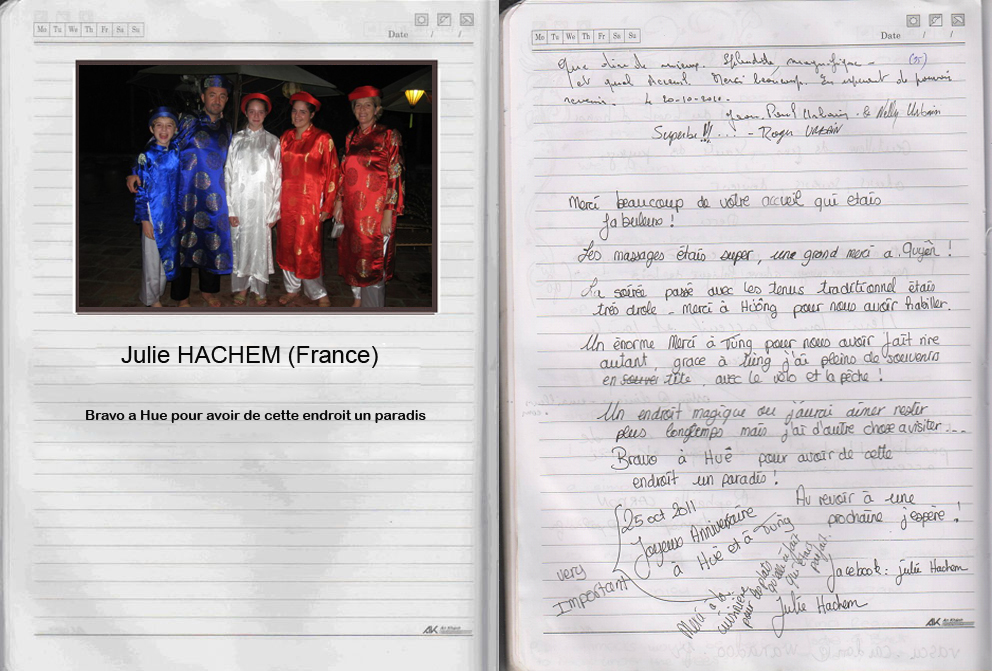 Mo Tu We Th Fr Sa Su
Date / /
Julie HACHEM (France)
Bravo a Hue pour avoir de cette endroit un paradis
Mo Tu We Th Fr Sa Su
Date / /
Que dire de mieux. Splendide, magnifique -
et quel accueil Merci beaucoup. En espérant de pouvoir
revenir. Le 20-10-2010.
Jean-Paul Urbain & Nelly Urbain
Superbe !!! ... - Roger URBAIN
Merci beaucoup de votre accueil qui etais
fabuleux !
Les massages étais super, une grand merci a Quyên !
La soirée passé avec les tenus traditionnel étais
très drole - merci à Hường pour nous avoir habiller.
Un énorme Merci à Tùng pour nous avoir fait rire
autant, grace à Tùng j'ai pleins de souvenirs
en souver tête, avec le vélo et la pêche !
Un endroit magique ou j'aurai aimer rester
plus longtemps mais j'ai d'autre chose a visiter...
Bravo à Huê pour avoir de cette
endroit un paradis !
Au revoir à une
prochaine j'espère !
25 oct 2011
Joyeux Anniversaire
à Huê et à Tùng
very
Important
Merci à la
cuisinière
pour les plats
qu'elle a fait
qui était
parfait.
facebook : julie Hachem
Julie Hachem